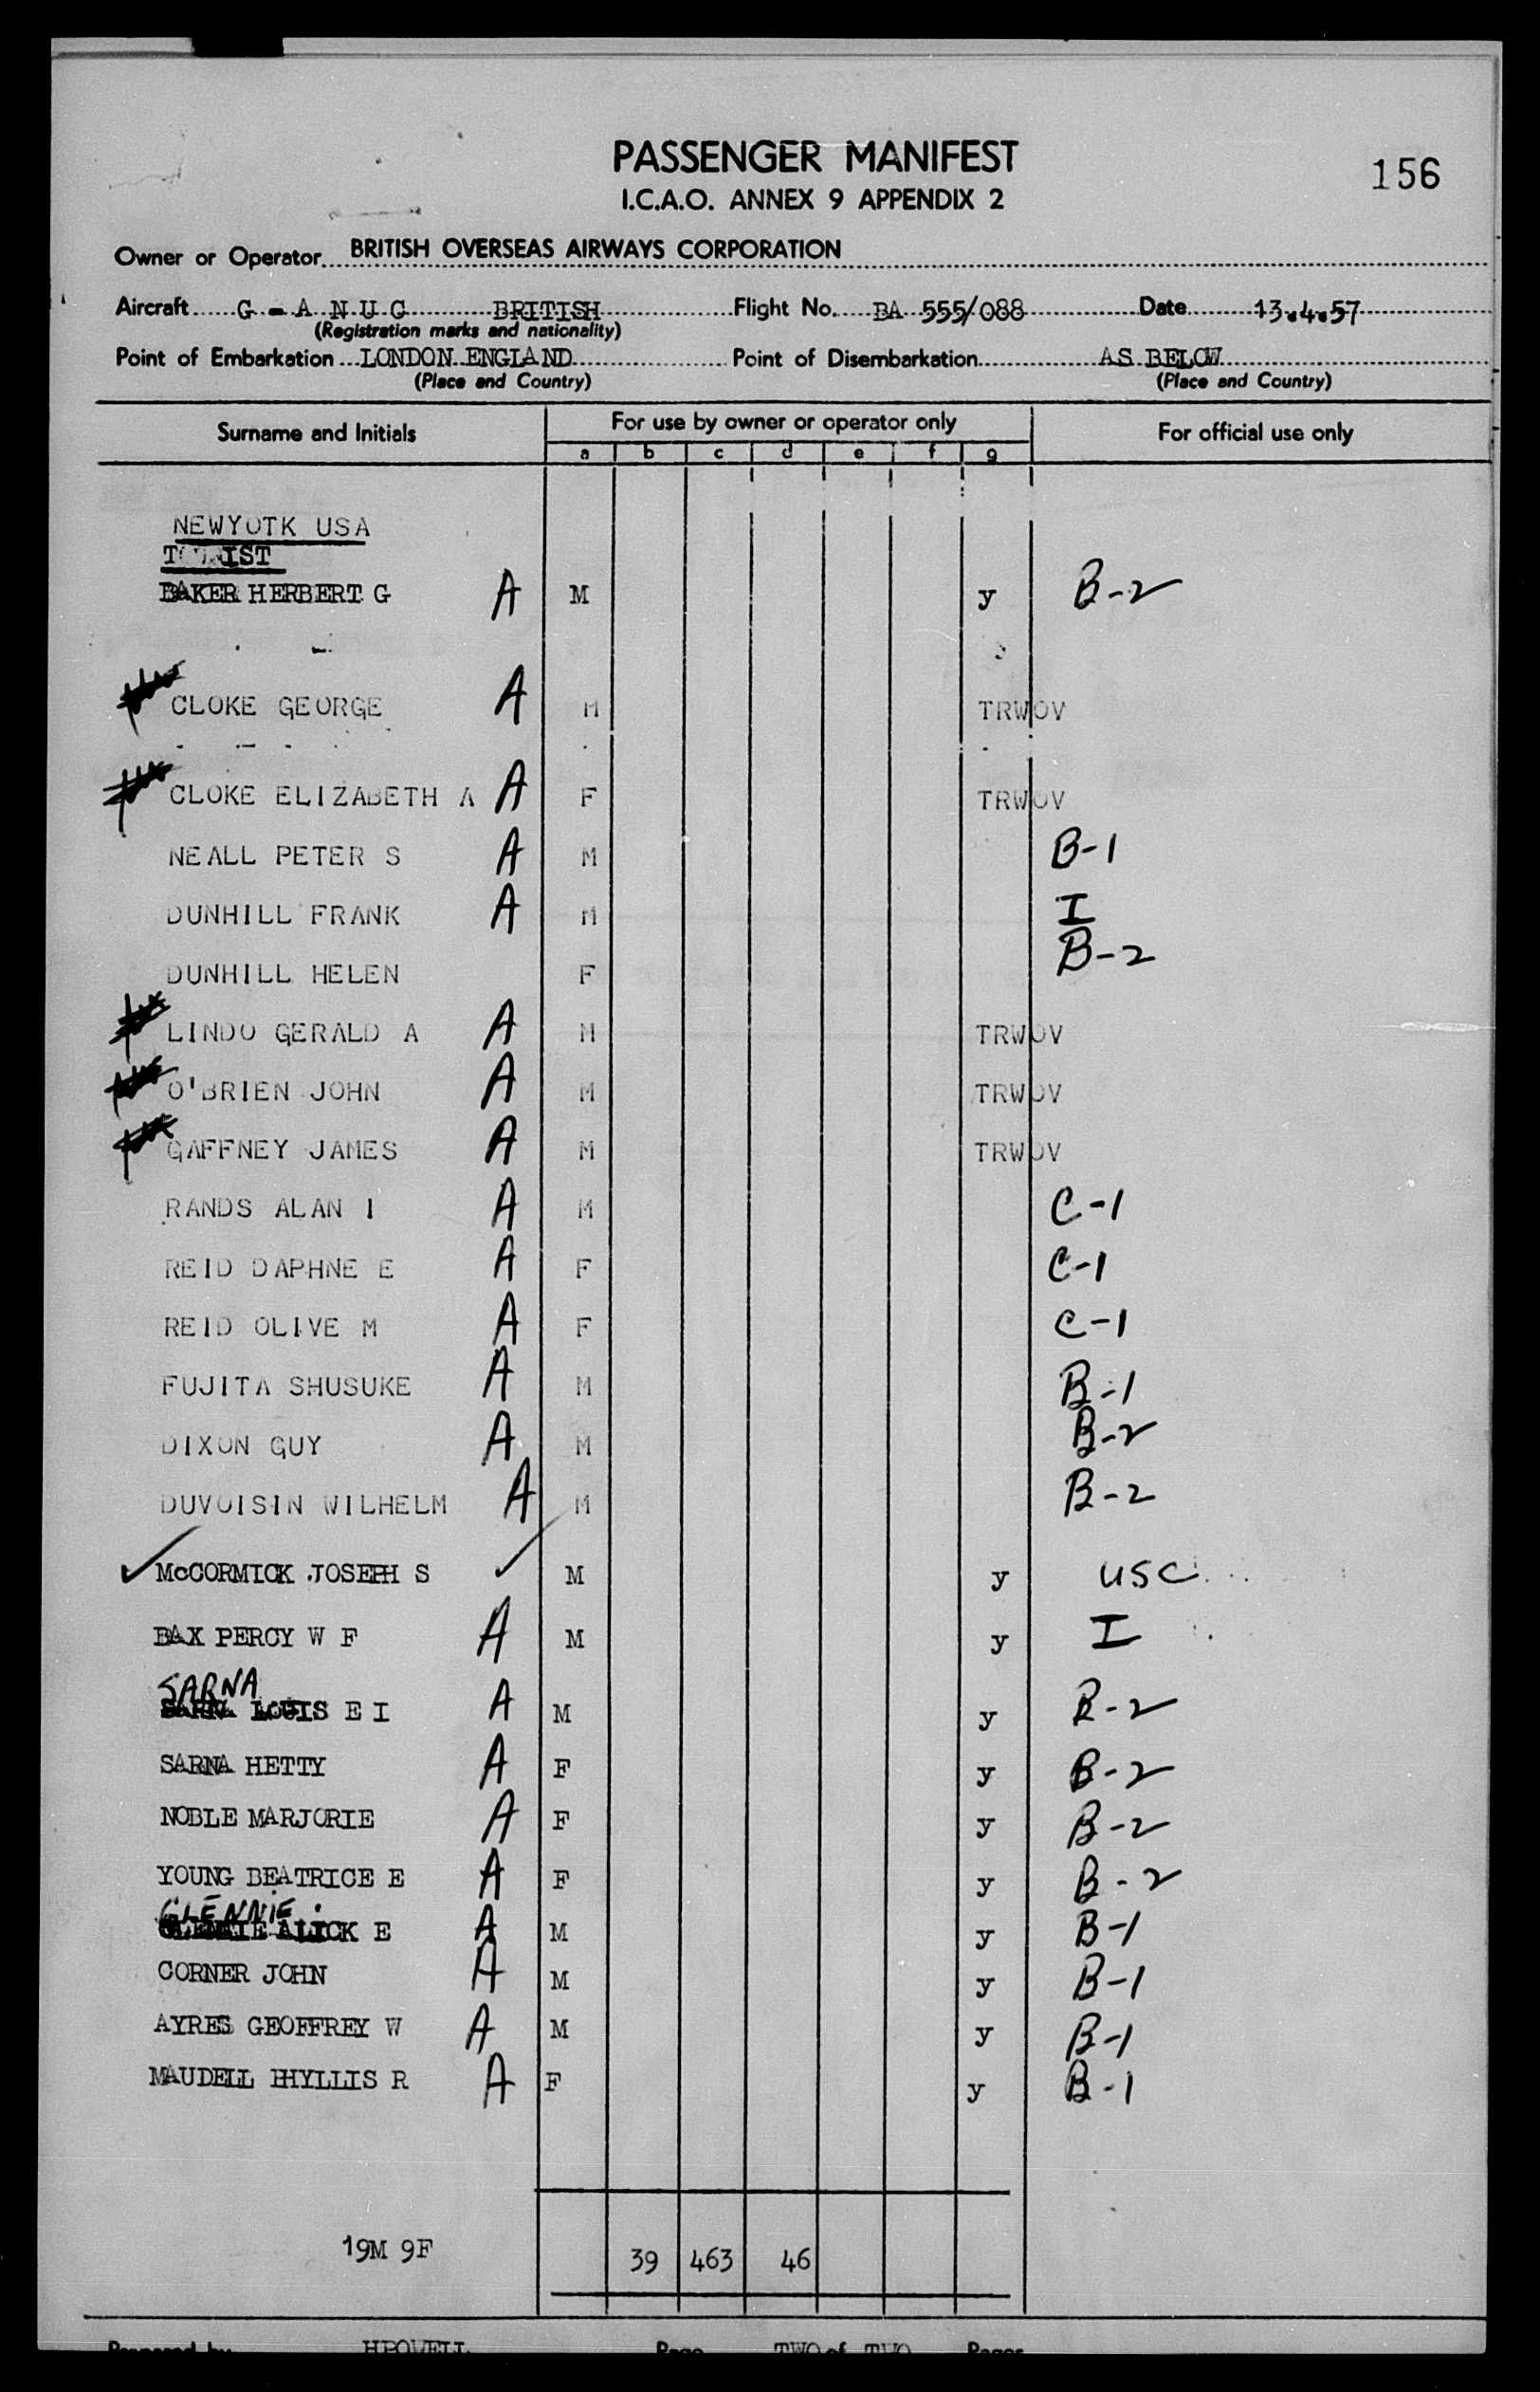 PASSENGER MANIFEST
156
I.C.A.O. ANNEX 9 APPENDIX 2
Owner or Operator BRITISH OVERSEAS AIRWAYS CORPORATION
Aircraft G - A N U C BRITISH Flight No. BA 555/088 Date 13.4.57
(Registration marks and nationality)
Point of Embarkation LONDON ENGLAND Point of Disembarkation AS BELOW
(Place and Country) (Place and Country)
Surname and Initials For use by owner or operator only For official use only
a b c d e f g
NEWYOTK USA
TOURIST
BAKER HERBERT G A M y B-2
CLOKE GEORGE A M TRWOV
CLOKE ELIZABETH A A F TRWOV
NEALL PETER S A M B-1
DUNHILL FRANK A M I
DUNHILL HELEN F B-2
LINDO GERALD A A M TRWOV
O'BRIEN JOHN A M TRWOV
GAFFNEY JAMES A M TRWOV
RANDS ALAN I A M C-1
REID DAPHNE E A F C-1
REID OLIVE M A F C-1
FUJITA SHUSUKE A M B-1
DIXON GUY A M B-2
DUVOISIN WILHELM A M B-2
McCORMICK JOSEPH S M y USC
BAX PERCY W F A M y I
SARNA
LOUIS E I A M y B-2
SARNA HETTY A F y B-2
NOBLE MARJORIE A F y B-2
YOUNG BEATRICE E A F y B-2
GLENNIE
ALICK E A M y B-1
CORNER JOHN A M y B-1
AYRES GEOFFREY W A M y B-1
MAUDELL PHYLLIS R A F y B-1
19M 9F 39 463 46
Prepared by HPOWELL Page TWO of TWO Pages